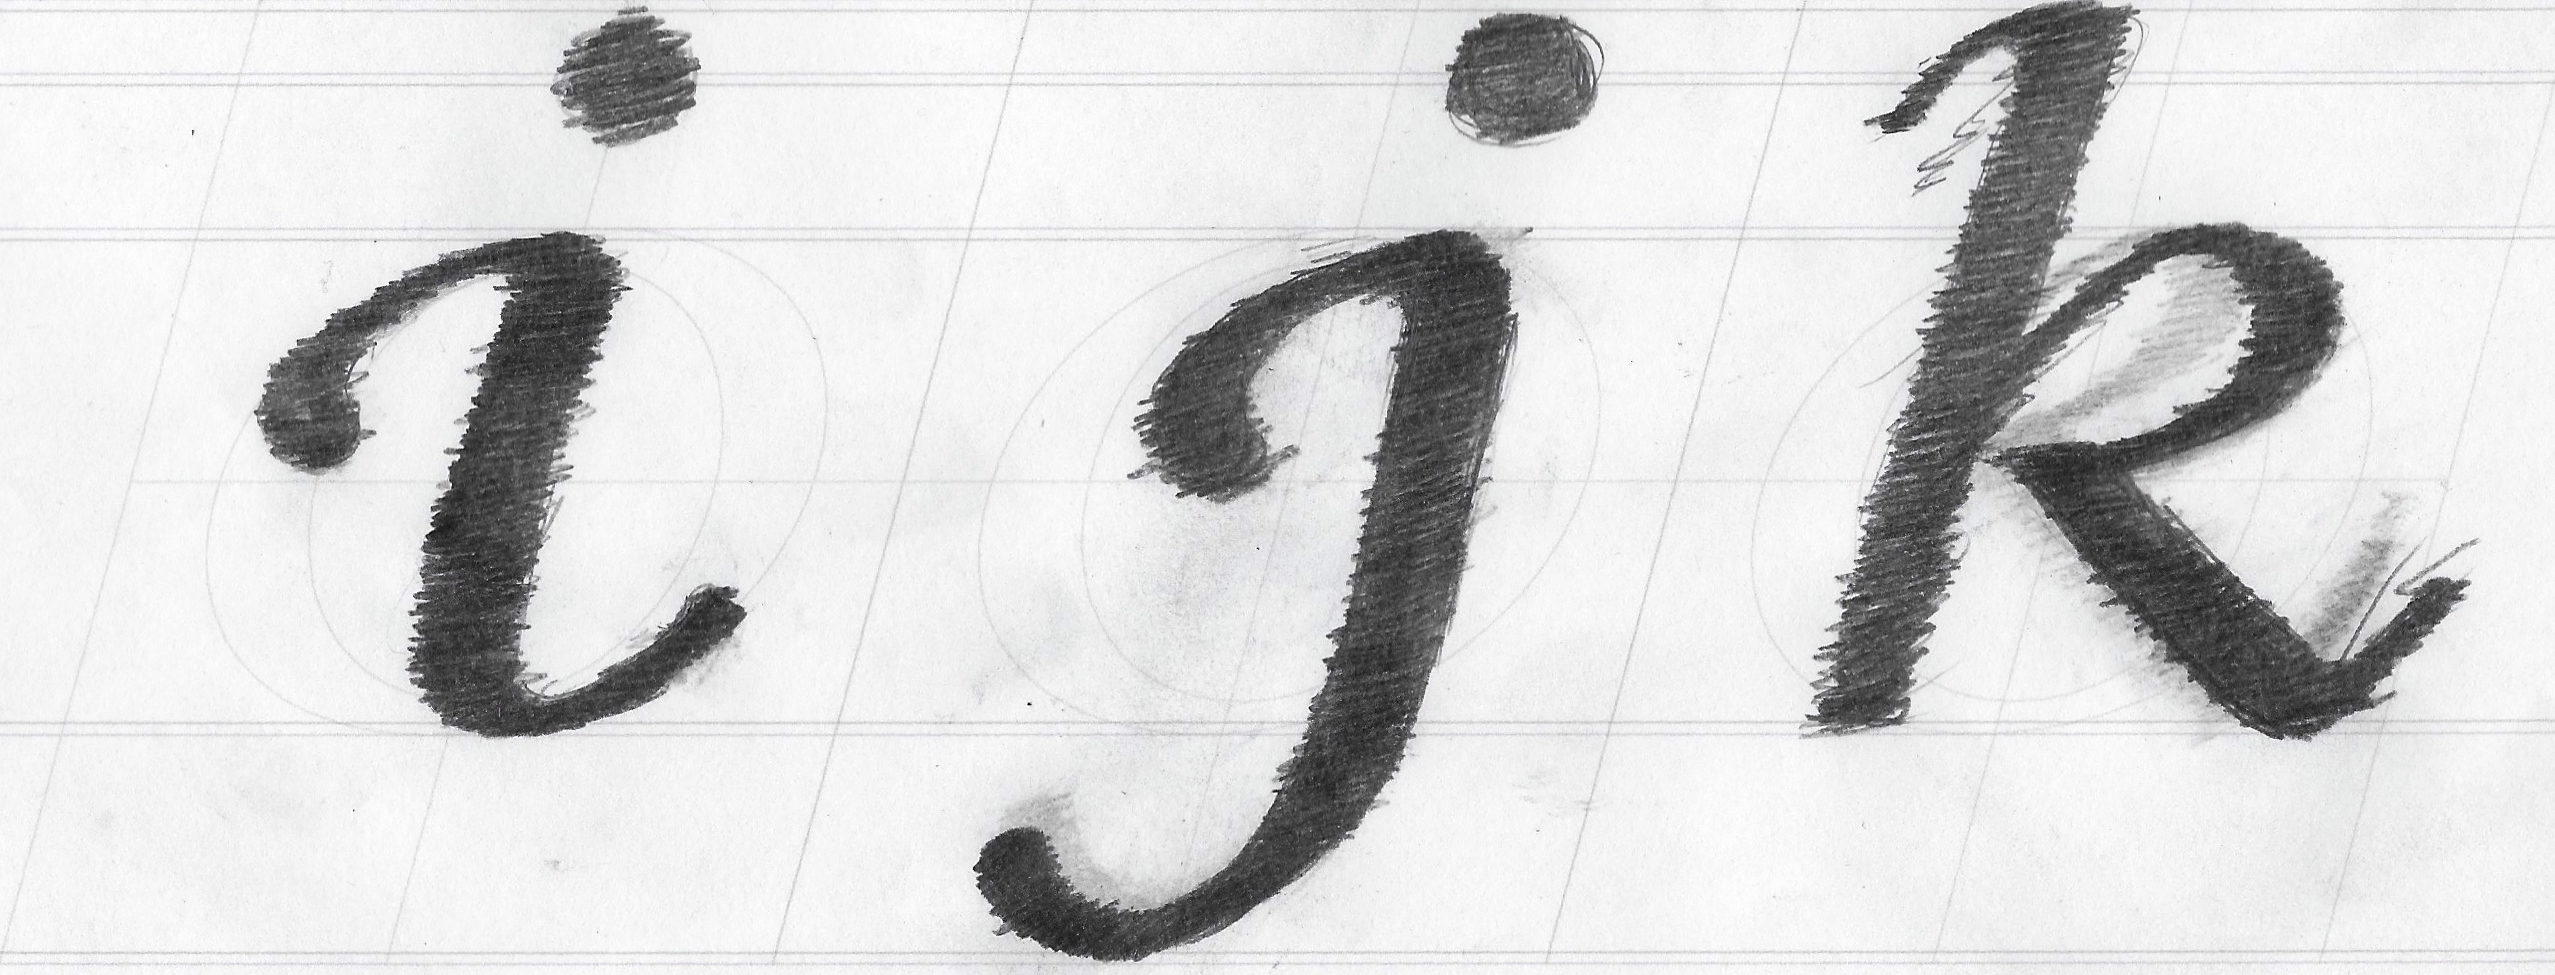 i j k